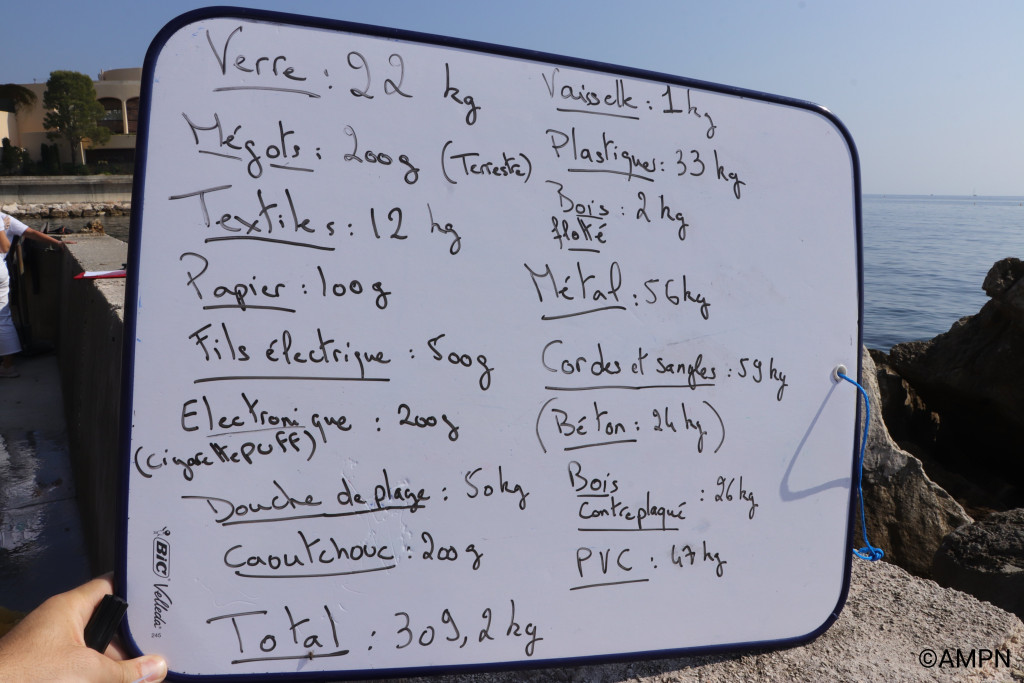 Verre : 22 kg
Mégots : 200g (Terrestre)
Textiles : 12 kg
Papier : 100g
Fils électrique : 500g
Electronique : 200g
(Cigarette PUFF)
Douche de plage : 50kg
Caoutchouc : 200g
Vaisselle : 1kg
Plastiques : 33 kg
Bois : 2 kg
flotté
Métal : 56kg
Cordes et sangles : 59kg
(Béton : 24 kg)
Bois
Contreplaqué : 26kg
PVC : 47kg
Total : 309,2kg
BIC Velleda
©AMPN